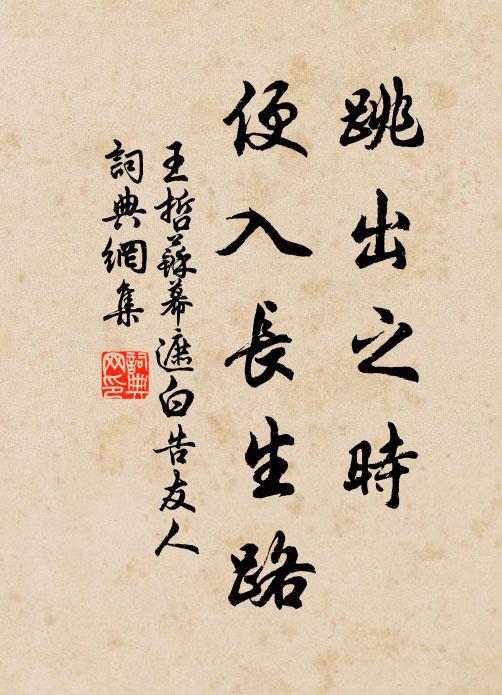 跳出之時
便入長生路
王哲蘇幕遮白告友人
詞典網集
詞典網印